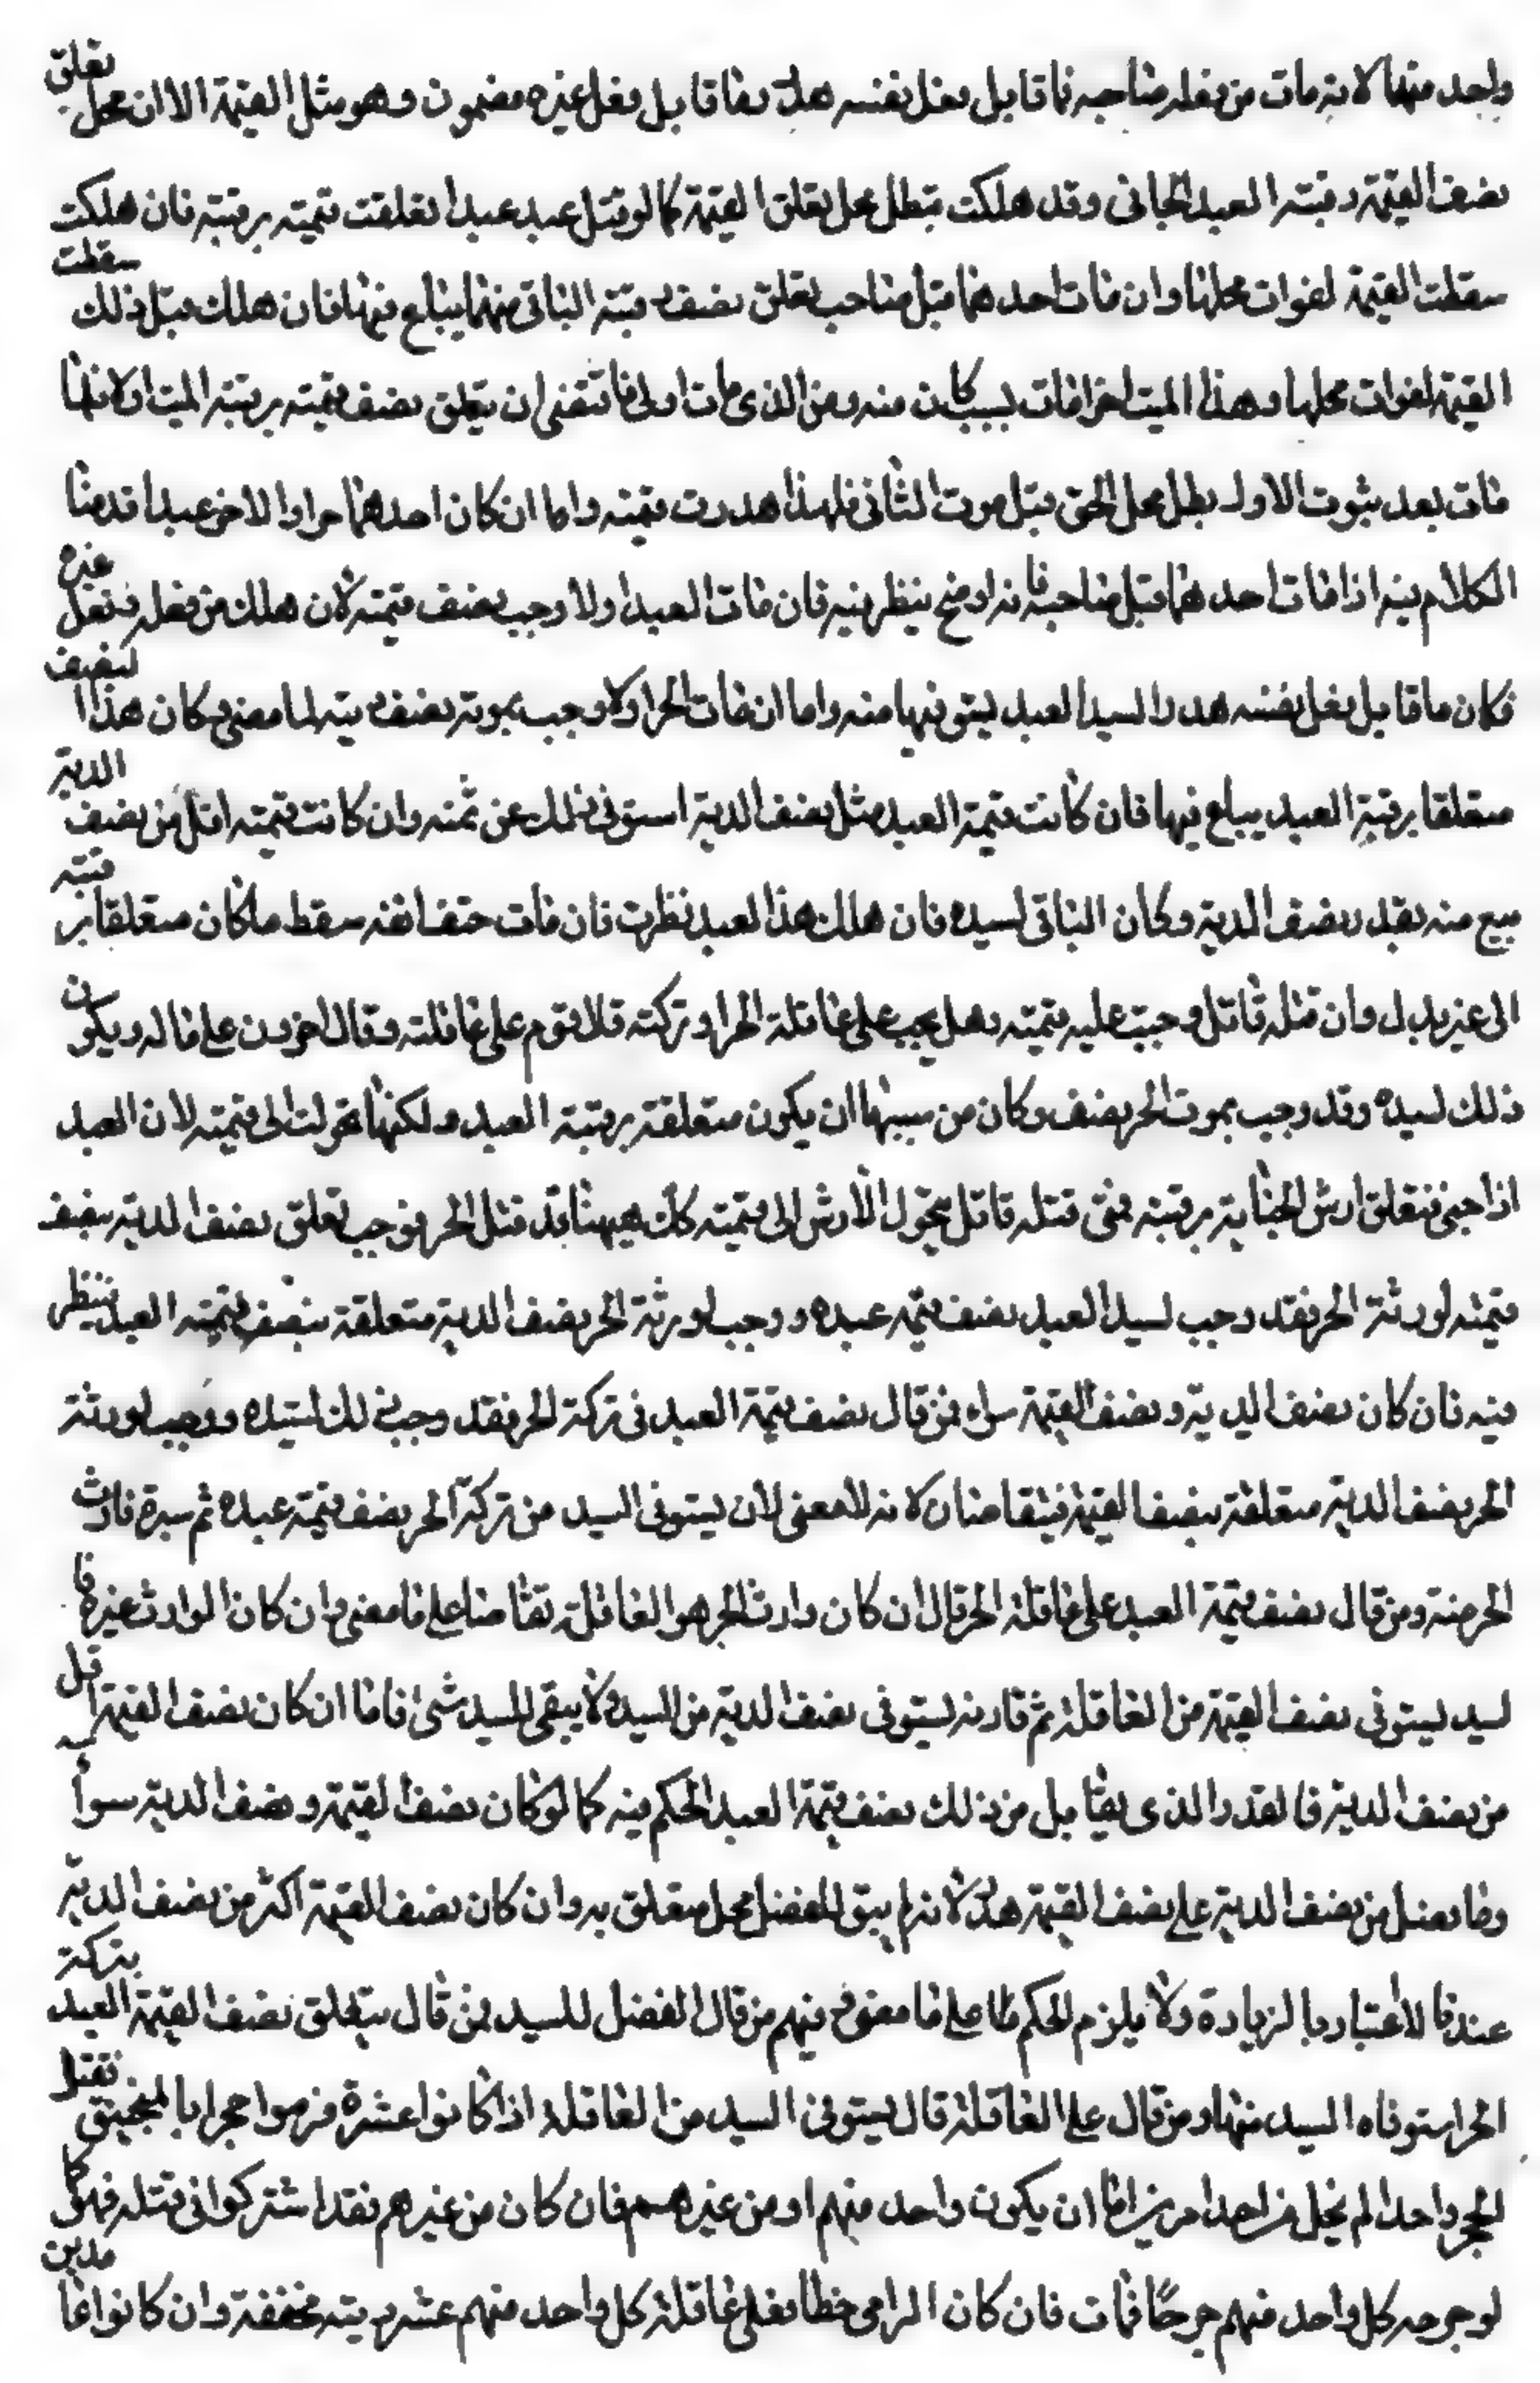 واحد منهما لانه مات من فعله صاحبه فما قابل فعل نفسه هدر وما قابل فعل غيره مضمون وهو مثل القيمة الا ان محل تعلق
نصف القيمة رقبته العبد الجاني وقد هلكت فبطل محل تعلق القيمة كما لو قتل عبد عبدا تعلقت قيمته برقبته فان هلكت
سقطت القيمة لفوات محلها وان مات احدهما قبل صاحب تعلق نصف رقبته الباقي منهما يباع فيها فان هلك قبل ذلك سقطت
القيمة لفوات محلها وهذا الميت اخرا مات بسبب كان منه ومن الذي مات اولى فاقتضى ان يتعلق نصف قيمته برقبة الميت اولا فلما
مات بعد ثبوت الاول بطل محل الحق قبل موت الثاني فلهذا هدرت قيمته واما ان كان احدهما حرا والاخر عبدا قدمنا
الكلام فيه اذا مات احدهما قبل صاحبه فانه اوضح ينظر فيه فان مات العبد اولا وجب نصف قيمته لان هلك من فعله وفعل غيره
فكان ما قابل فعل نفسه هدرا لسيد العبد يستوفيها منه واما ان مات الحر اولا وجب بموته نصف ديته لما مضى وكان هذا النصف
متعلقا برقبة العبد يباع فيها فان كانت قيمة العبد مثل نصف الدية استوفى ذلك عن ثمنه وان كانت قيمته اقل من نصف الدية
بيع منه بقدر نصف الدية وكان الباقي لسيده فان هلك هذا العبد نظرت فان مات حتف انفه سقط ما كان متعلقا برقبته
الى غير بدل وان قتله قاتل وجبت عليه قيمته وهل يجب على عاقلة الحر او تركته فلا قوم على عاقلته وقال اخرون على ماله ويكون
ذلك لسيده وقد وجب بموت الحر نصف وكان من سببها ان يكون متعلقة برقبة العبد ولكنها تحولت الى قيمته لان العبد
اذا جنى فتعلق ارش الجناية برقبته فمتى قتله قاتل تحول الارش الى قيمته كك هيهنا قد قتل الحر فوجب تعلق نصف الدية بنصف
قيمته لورثة الحر فقد وجب لسيد العبد نصف قيمة عبده ووجب لورثة الحر نصف الدية متعلقة بنصف قيمته العبد ينظر
فيه فان كان نصف الدية ونصف القيمة سواء فمن قال نصف قيمة العبد في تركة الحر فقد وجب ذلك لسيده ووجب لورثة
الحر نصف الدية متعلقة بنصف القيمة فيتقاضان لانه لا معنى لان يستوفي السيد من تركة الحر نصف قيمة عبده ثم يسترده وارث
الحر منه ومن قال نصف قيمة العبد على عاقلة الحر قال ان كان وارث الحر هو العاقلة تقاصا على ما مضى وان كان الوارث غيره فا
لسيد يستوفي نصف القيمة من العاقلة ثم وارثه يستوفي نصف الدية من السيد ولا يبقى للسيد شئ فاما ان كان نصف القيمة اقل
من نصف الدية فالقدر الذي يقابل من ذلك نصف قيمة العبد الحكم فيه كما لو كان نصف القيمة ونصف الدية سواء
وما فضل من نصف الدية على نصف القيمة هدر لانه لم يبق للفضل محل متعلق به وان كان نصف القيمة اكثر من نصف الدية
عندنا لا اعتبار بالزيادة ولا يلزم الحكم على ما مضى ومنهم من قال الفضل للسيد فمن قال يتعلق نصف القيمة العبد بتركة
الحر استوفاه السيد منها ومن قال على العاقلة قال يستوفي السيد من العاقلة اذا كانوا عشرة فرموا حجرا بالمنجنيق فقتل
الحجر واحدا لم يخل من احد امرين اما ان يكون واحد منهم او من غيرهم فان كان من غيرهم فقد اشتركوا في قتله فهو كما
لو جرحه كل واحد منهم جرحًا فمات فان كان الرمي خطأ فعلى عاقلة كل واحد منهم عشر ديته مخففة وان كانوا عامدين